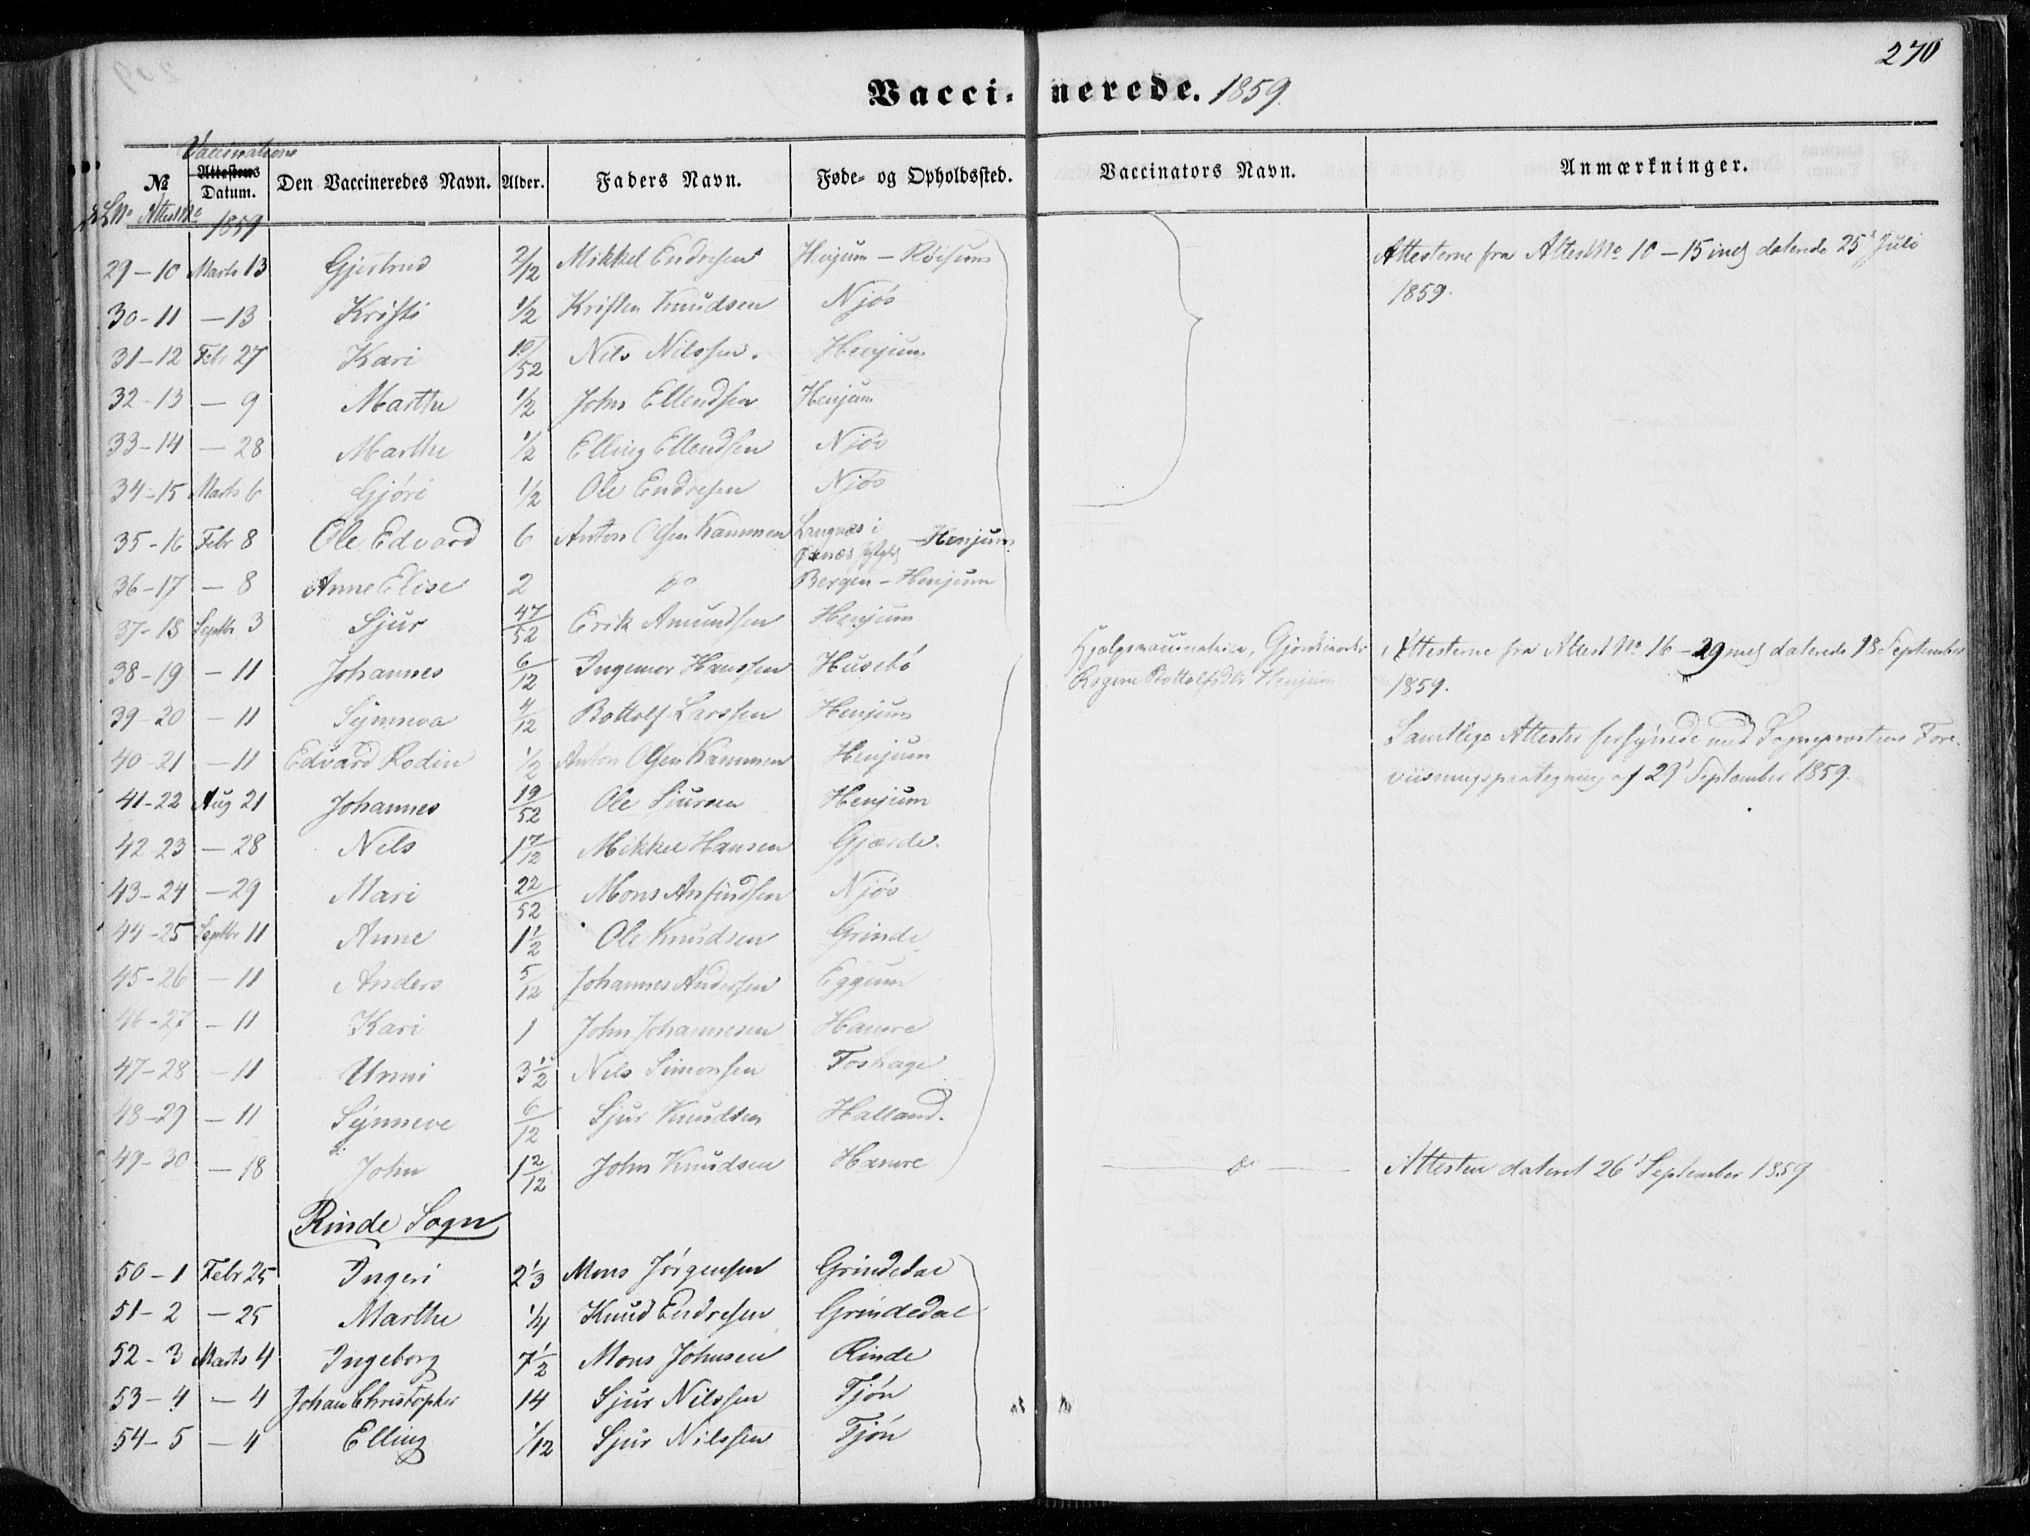 270
Vaccinerede. 1859.
Vaccinations
№ Attestens Datum. Den Vaccineredes Navn. Alder. Faders Navn. Føde- og Opholdssted. Vaccinators Navn. Anmærkninger.
LNo AttestNo 1859
29-10 Marts 13 Gjertrud 2/12 Mikkel Endresen Henjum - Röisum Attesterne fra AttestNo 10-15 incl daterede 25 Juli
1859.
30-11 - 13 Kristi 1/2 Kristen Knudsen Njøs
31-12 Febr 27 Kari 10/52 Nils Nilssen. Henjum
32-13 - 9 Marthe 1/2 John Ellendsen Henjum
33-14 - 28 Marthe 1/2 Elling Ellendsen Njøs
34-15 Marts 6 Gjøri 1/2 Ole Endresen Njøs
35-16 Febr 8 Ole Edvard 6 Anton Olsen Kammen Langnæs i Øxnæs - Henjum
36-17 - 8 Anne Elise 2 do Bergen - Henjum
37-18 Septbr 3 Sjur 47/52 Erik Amundsen Henjum
38-19 - 11 Johannes 6/12 Ingemor Hanssen Husebö Hjælpevaccinatrice, Gjordemoder Attesterne fra Attest No 16-29 incl daterede 18 September
Bottolfsdtr Henjum 1859.
39-20 - 11 Synneva 4/12 Bottolf Larssen Henjum
Samtlige Attester forsynede med Sogneprestens Fore-
40-21 - 11 Edvard Rodin 1/2 Anton Olsen Kammen Henjum
viisningspaategning af 29 September 1859.
41-22 Aug 21 Johannes 19/52 Ole Sjursen Henjum
42-23 - 28 Nils 1 7/12 Mikkel Hansen Gjærde.
43-24 - 29 Mari 22/52 Mons Anfindsen Njøs
44-25 Septbr 11 Anne 1 1/2 Ole Knudsen Grinde
45-26 - 11 Anders 5/12 Johannes Andersen Eggum
46-27 - 11 Kari 1 John Johannesen Hamre
47-28 - 11 Unni 3 1/2 Nils Simonsen Foshage
48-29 - 11 Synneve 6/12 Sjur Knudsen Halland.
49-30 - 18 John 1 2/12 John Knudsen Hamre - do - Attesten dateret 26 September 1859
Rinde Sogn
50-1 Febr 25 Ingeri 2 1/3 Mons Jörgensen Grindedal
51-2 - 25 Marthe 1/4 Knud Endresen Grindedal
52-3 Marts 4 Ingeborg 7 1/2 Mons Johnsen Rinde
53-4 - 4 Johan Christopher 14 Sjur Nilssen Tjøn
54-5 - 4 Elling 1/12 Sjur Nilssen Tjøn